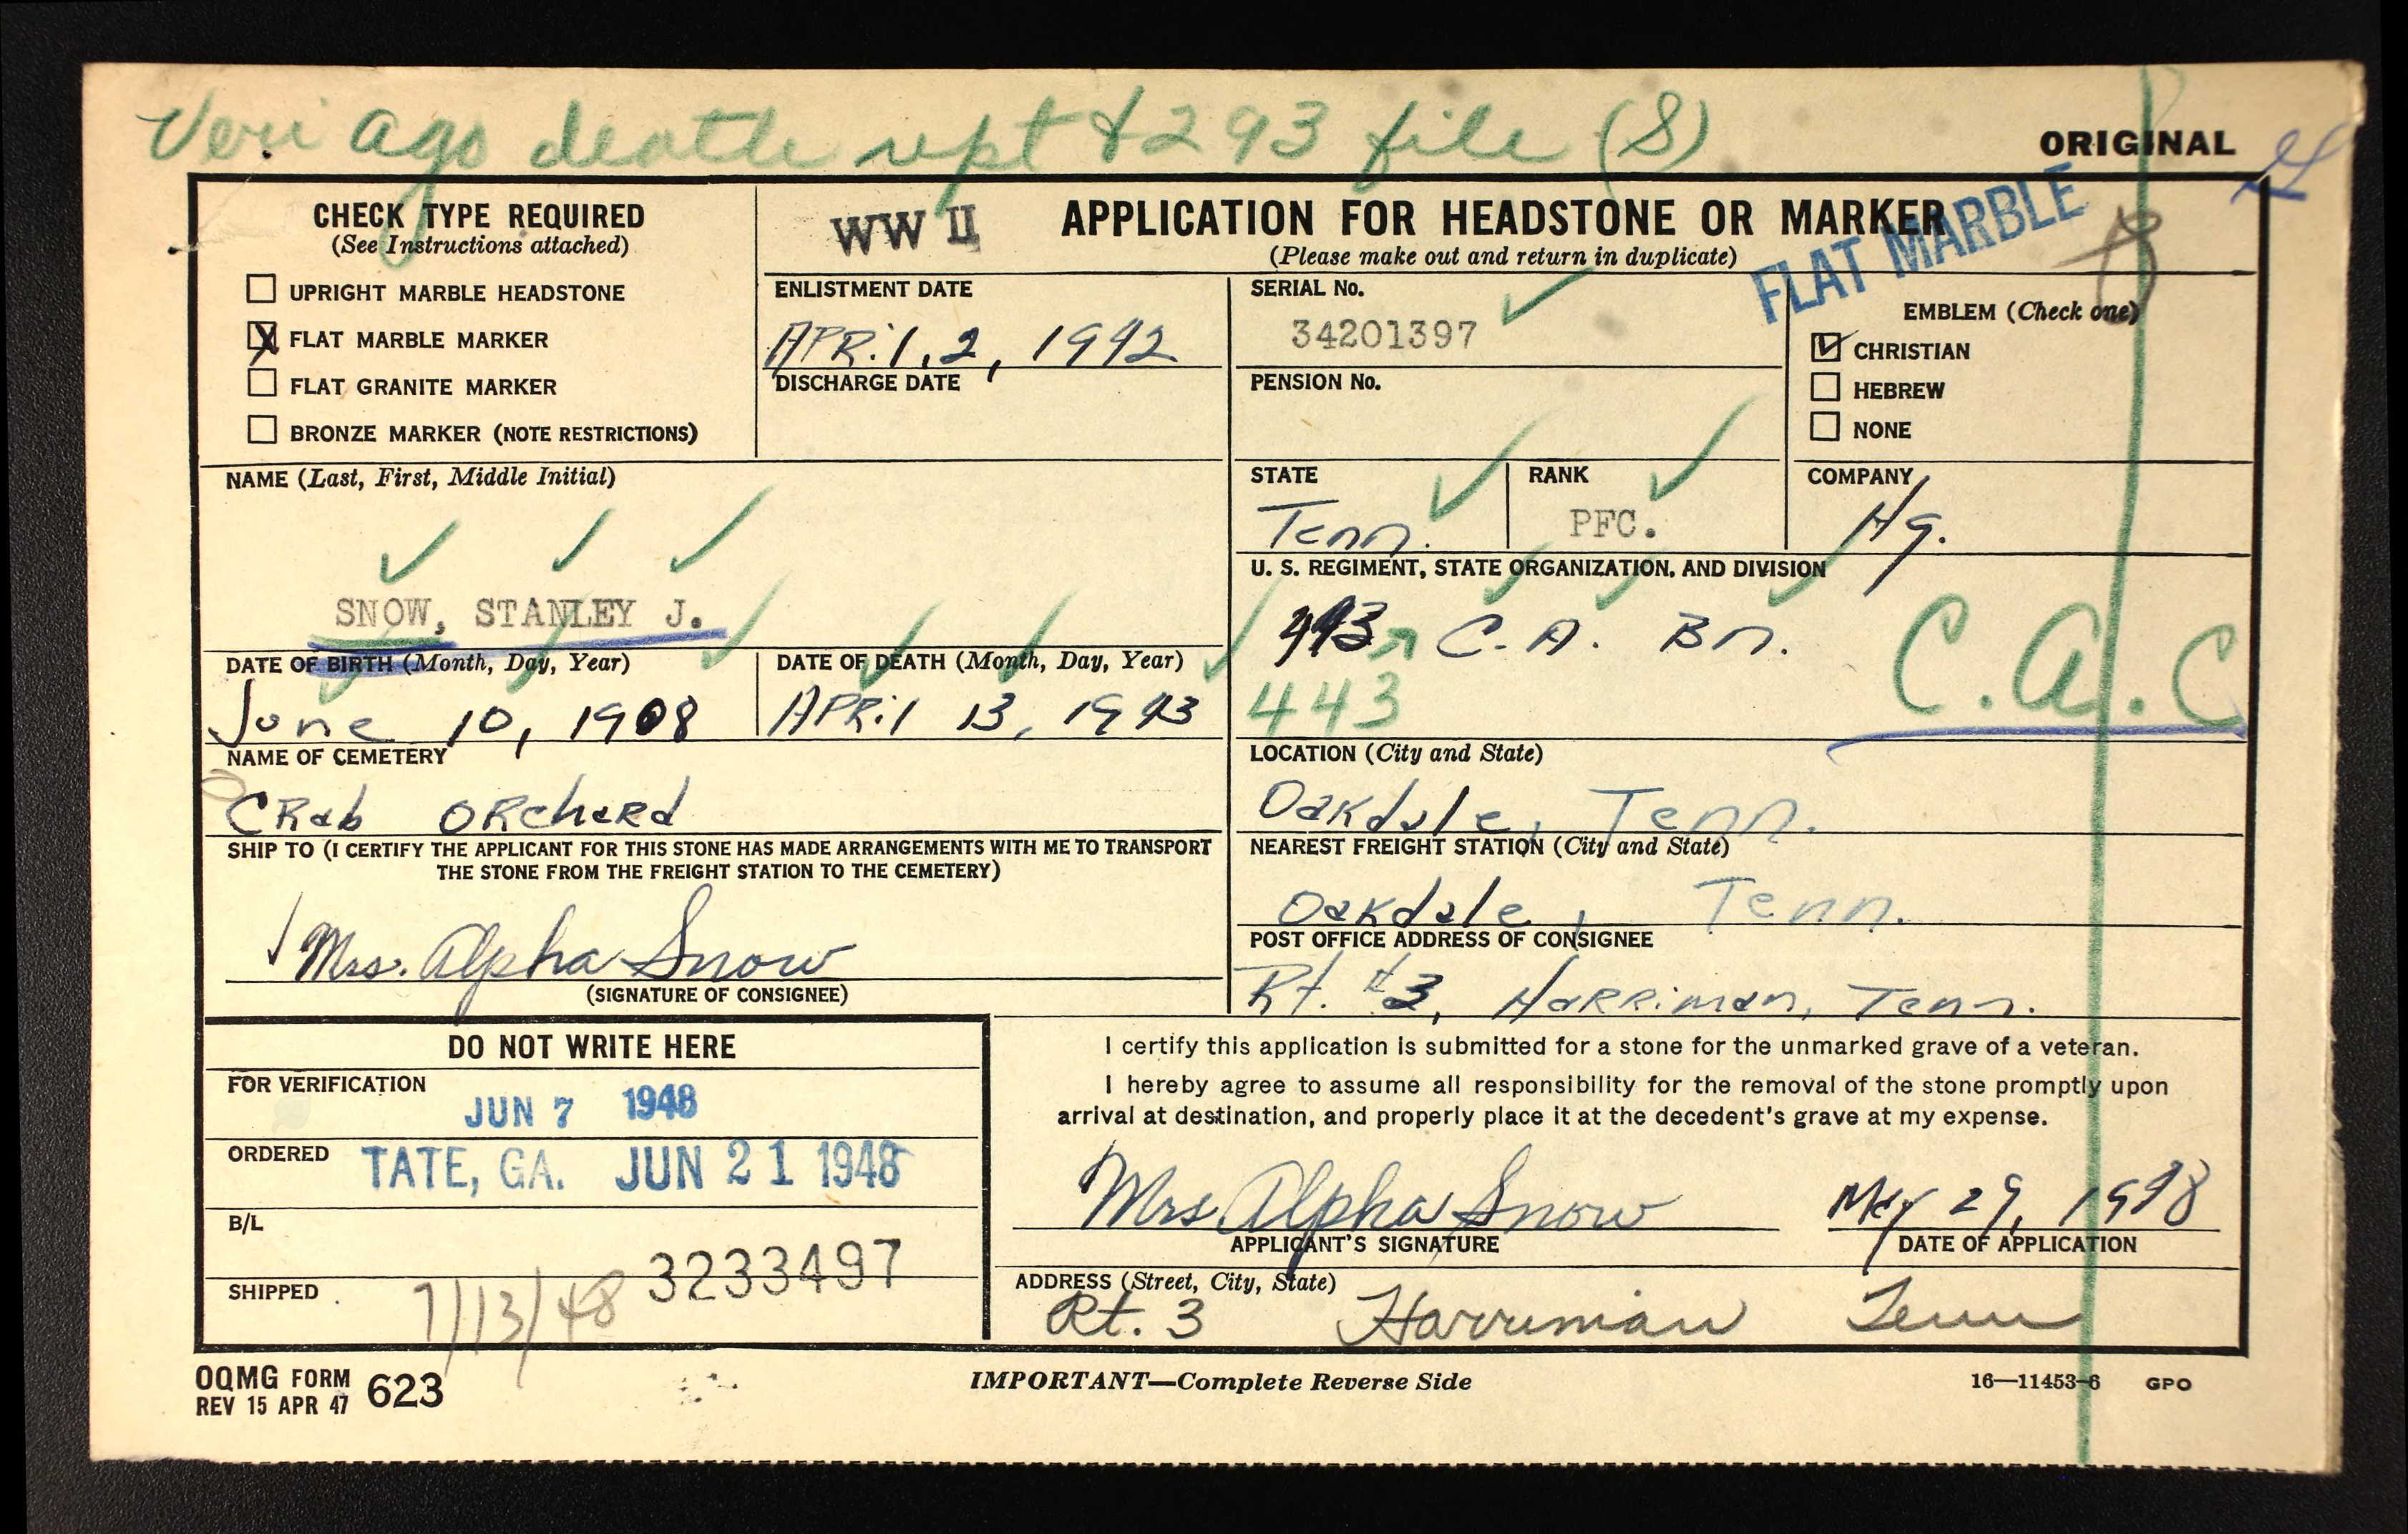 Veri ago death rpt & 293 file (S)
ORIGINAL
CHECK TYPE REQUIRED
(See Instructions attached)
UPRIGHT MARBLE HEADSTONE
X FLAT MARBLE MARKER
FLAT GRANITE MARKER
BRONZE MARKER (NOTE RESTRICTIONS)
WW II
APPLICATION FOR HEADSTONE OR MARKER
(Please make out and return in duplicate)
FLAT MARBLE
ENLISTMENT DATE
APRil, 2, 1942
DISCHARGE DATE
SERIAL No.
34201397
PENSION No.
EMBLEM (Check one)
CHRISTIAN
HEBREW
NONE
NAME (Last, First, Middle Initial)
SNOW, STANLEY J.
STATE
Tenn.
RANK
PFC.
COMPANY
Hq.
U. S. REGIMENT, STATE ORGANIZATION, AND DIVISION
443 C. A. Bn.
443
C.A.C
DATE OF BIRTH (Month, Day, Year)
June 10, 1908
DATE OF DEATH (Month, Day, Year)
APRil 13, 1943
NAME OF CEMETERY
CRab ORchaRd
LOCATION (City and State)
Oakdale, Tenn.
SHIP TO (I CERTIFY THE APPLICANT FOR THIS STONE HAS MADE ARRANGEMENTS WITH ME TO TRANSPORT
THE STONE FROM THE FREIGHT STATION TO THE CEMETERY)
Mrs. Alpha Snow
(SIGNATURE OF CONSIGNEE)
NEAREST FREIGHT STATION (City and State)
Oakdale, Tenn.
POST OFFICE ADDRESS OF CONSIGNEE
Rt. #3, HaRRiman, Tenn.
DO NOT WRITE HERE
FOR VERIFICATION
JUN 7 1948
ORDERED
TATE, GA. JUN 21 1948
B/L
3233497
SHIPPED
7/13/48
I certify this application is submitted for a stone for the unmarked grave of a veteran.
I hereby agree to assume all responsibility for the removal of the stone promptly upon
arrival at destination, and properly place it at the decedent's grave at my expense.
Mrs Alpha Snow
APPLICANT'S SIGNATURE
May 29, 1948
DATE OF APPLICATION
ADDRESS (Street, City, State)
Rt. 3 Harriman Tenn
OQMG FORM
REV 15 APR 47 623
IMPORTANT—Complete Reverse Side
16—11453-6 GPO